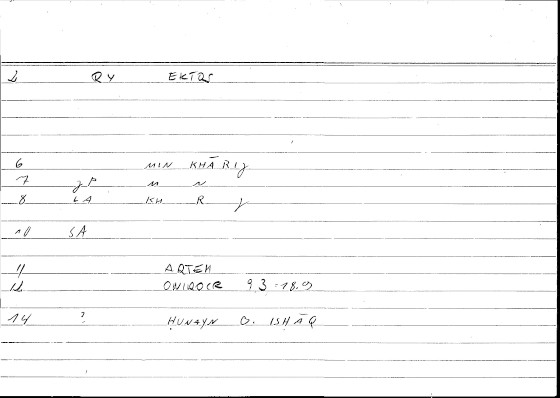 2 QY EKTOS
6 MIN KHĀRIJ
7 JP M N
8 LA KH R J
10 SA
11 ARTEM
12 ONIROCR 9.3-18.9
14 ? ḤUNAYN B. ISḤĀQ